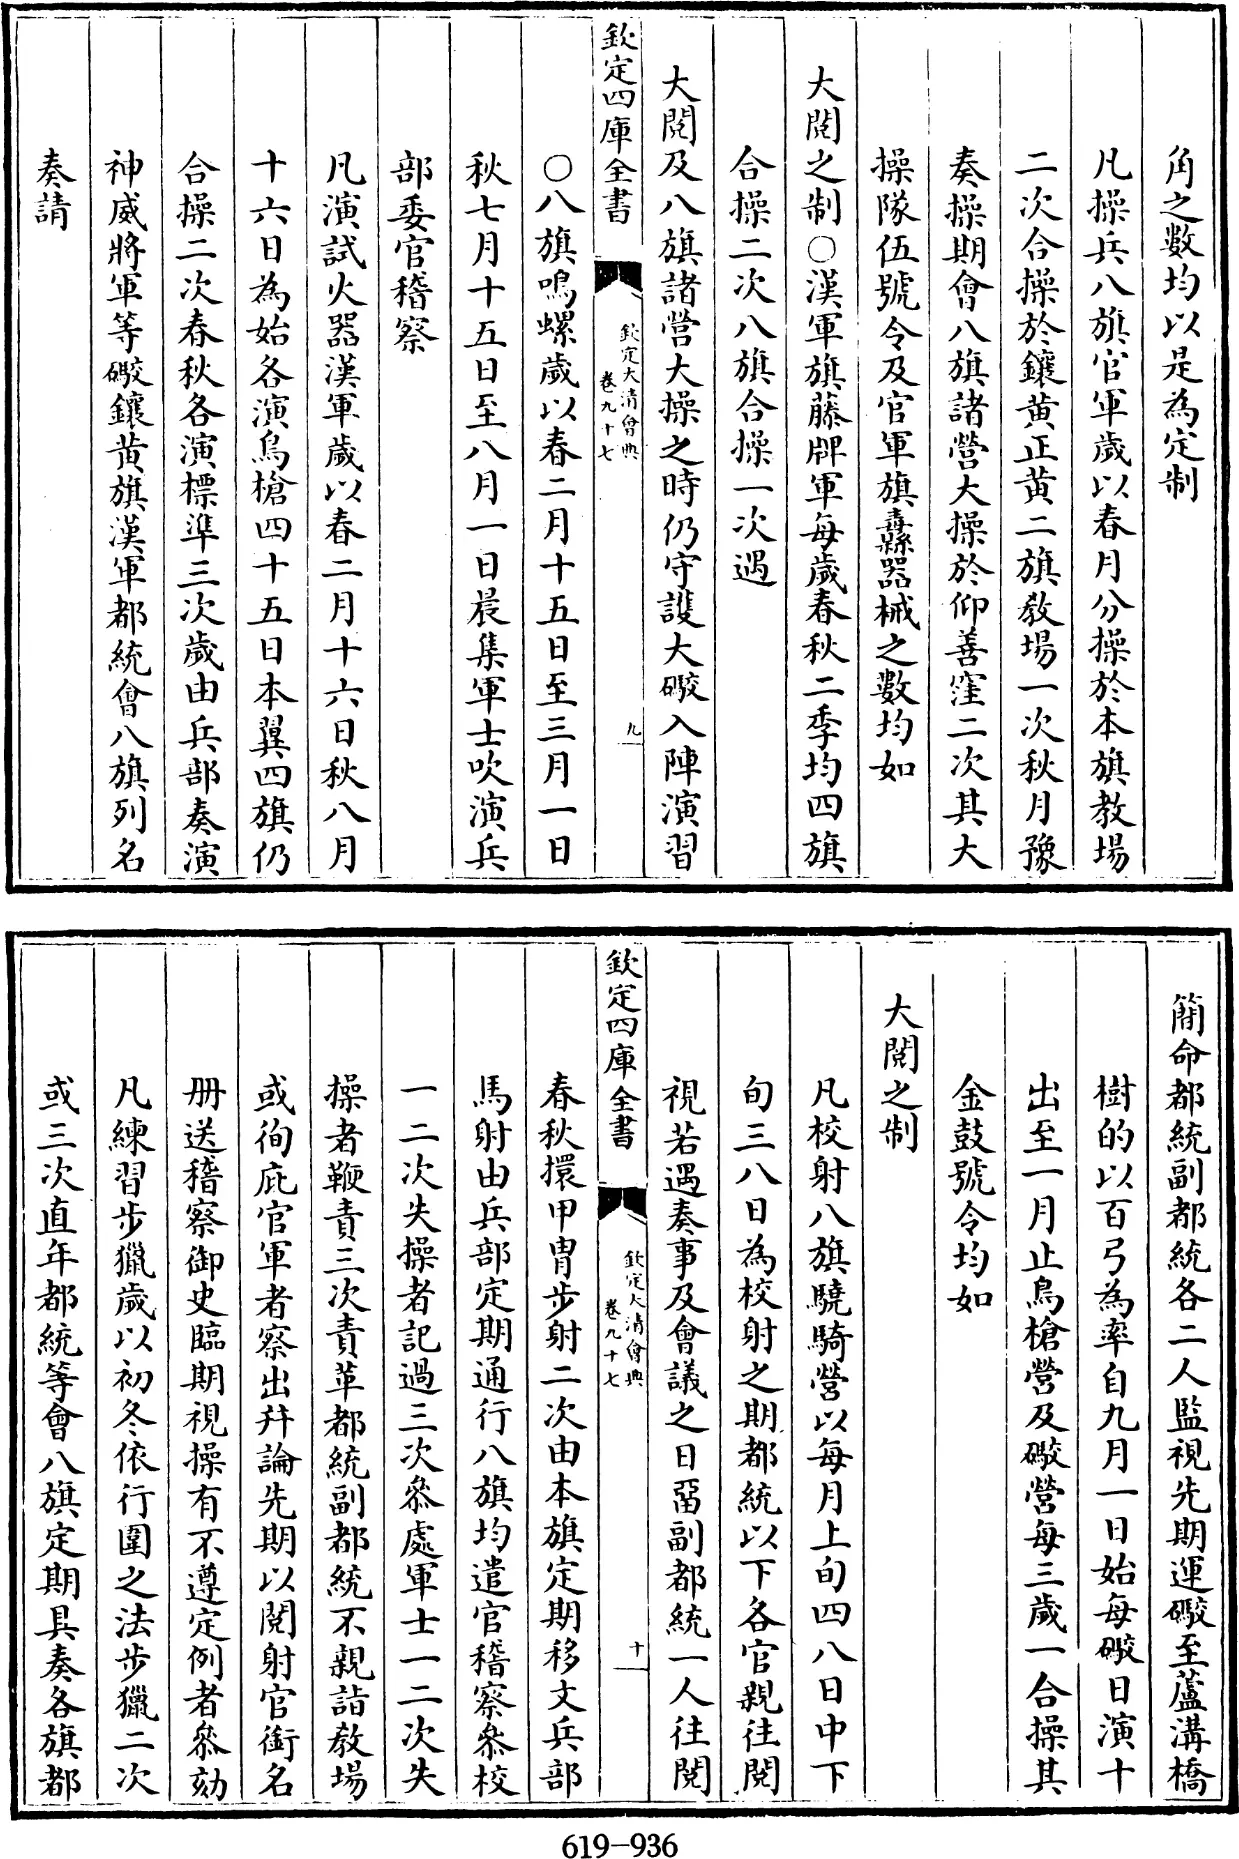 角之數均以是為定制
凡操兵八旗官軍歲以春月分操於本旗教場
二次合操於鑲黃正黃二旗教場一次秋月豫
奏操期會八旗諸營大操於仰善窪二次其大
操隊伍號令及官軍旗纛器械之數均如
大閱之制○漢軍旗藤牌軍每歲春秋二季均四旗
合操二次八旗合操一次遇
大閱及八旗諸營大操之時仍守護大礮入陣演習
欽定四庫全書
欽定大清會典
卷九十七
九
○八旗鳴螺歲以春二月十五日至三月一日
秋七月十五日至八月一日晨集軍士吹演兵
部委官稽察
凡演試火器漢軍歲以春二月十六日秋八月
十六日為始各演鳥槍四十五日本翼四旗仍
合操二次春秋各演標準三次歲由兵部奏演
神威將軍等礮鑲黃旗漢軍都統會八旗列名
奏請
簡命都統副都統各二人監視先期運礮至蘆溝橋
樹的以百弓為率自九月一日始每礮日演十
出至一月止鳥槍營及礮營每三歲一合操其
金鼓號令均如
大閱之制
凡校射八旗驍騎營以每月上旬四八日中下
旬三八日為校射之期都統以下各官親往閱
視若遇奏事及會議之日畱副都統一人往閱
欽定四庫全書
欽定大清會典
卷九十七
十
春秋擐甲冑步射二次由本旗定期移文兵部
馬射由兵部定期通行八旗均遣官稽察叅校
一二次失操者記過三次叅處軍士一二次失
操者鞭責三次責革都統副都統不親詣教場
或徇庇官軍者察出幷論先期以閱射官銜名
冊送稽察御史臨期視操有不遵定例者叅劾
凡練習步獵歲以初冬依行圍之法步獵二次
或三次直年都統等會八旗定期具奏各旗都
619-936